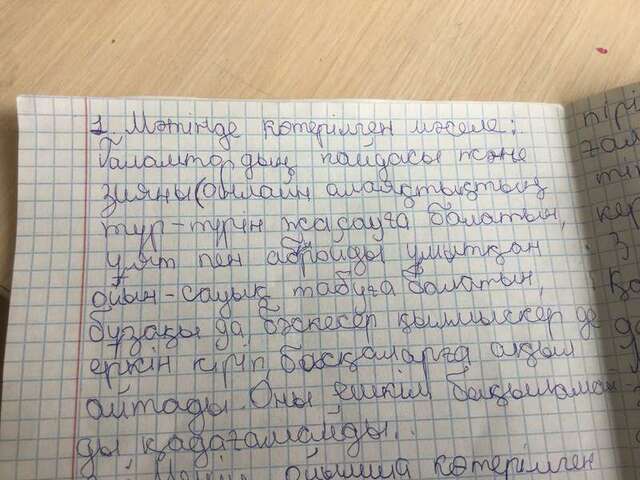 1. Мәтінде көтерілген мәселе:
Ғаламтордың пайдасы және
зияны (онлайн алаяқтықтың
түр-түрін жасауға болатын,
ұят пен абройды ұмытқан
ойын-сауық табуға болатын,
бұзақы да бәскесер қылмыскер де
еркін кіріп, басқаларға ақыл
айтады. Оны ешкім бақыламай-
ды қадағамайды.
ойынша көтерілген
пірі
ғал
тіп
кер
3
Қа